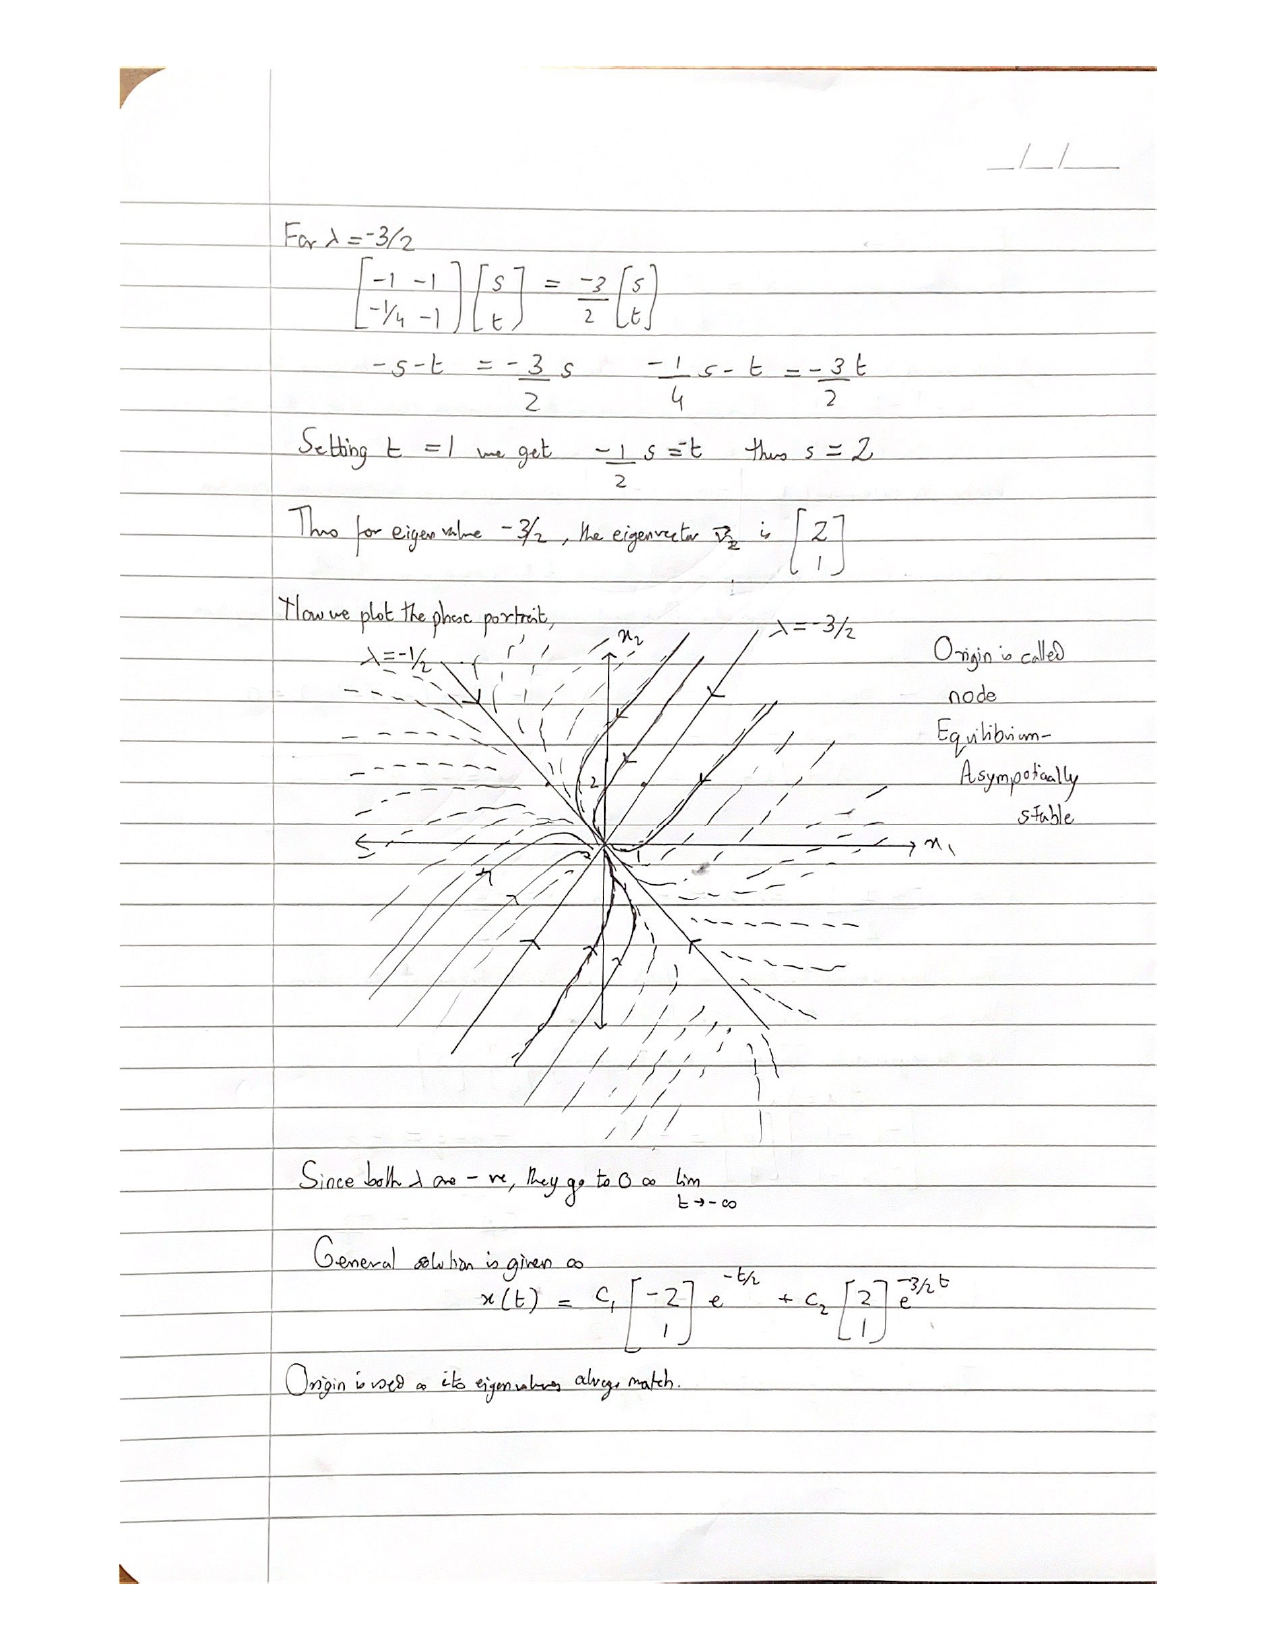 _/_/__
For λ = -3/2
[-1 -1; -1/4 -1] [s; t] = -3/2 [s; t]
-s-t = -3/2 s    -1/4 s - t = -3/2 t
Setting t = 1 we get -1/2 s = -t thus s = 2
Thus for eigen value -3/2, the eigenvector v⃗2 is [2; 1]
Now we plot the phase portrait,
λ = -1/2
x2
λ = -3/2
Origin is called
node
Equilibrium-
Asympotically
stable
2
1
x1
Since both λ are -ve, they go to 0 as lim t→-∞
General solution is given as
x(t) = C1 [-2; 1] e^(-t/2) + C2 [2; 1] e^(-3/2 t)
Origin is used as its eigenvalues always match.